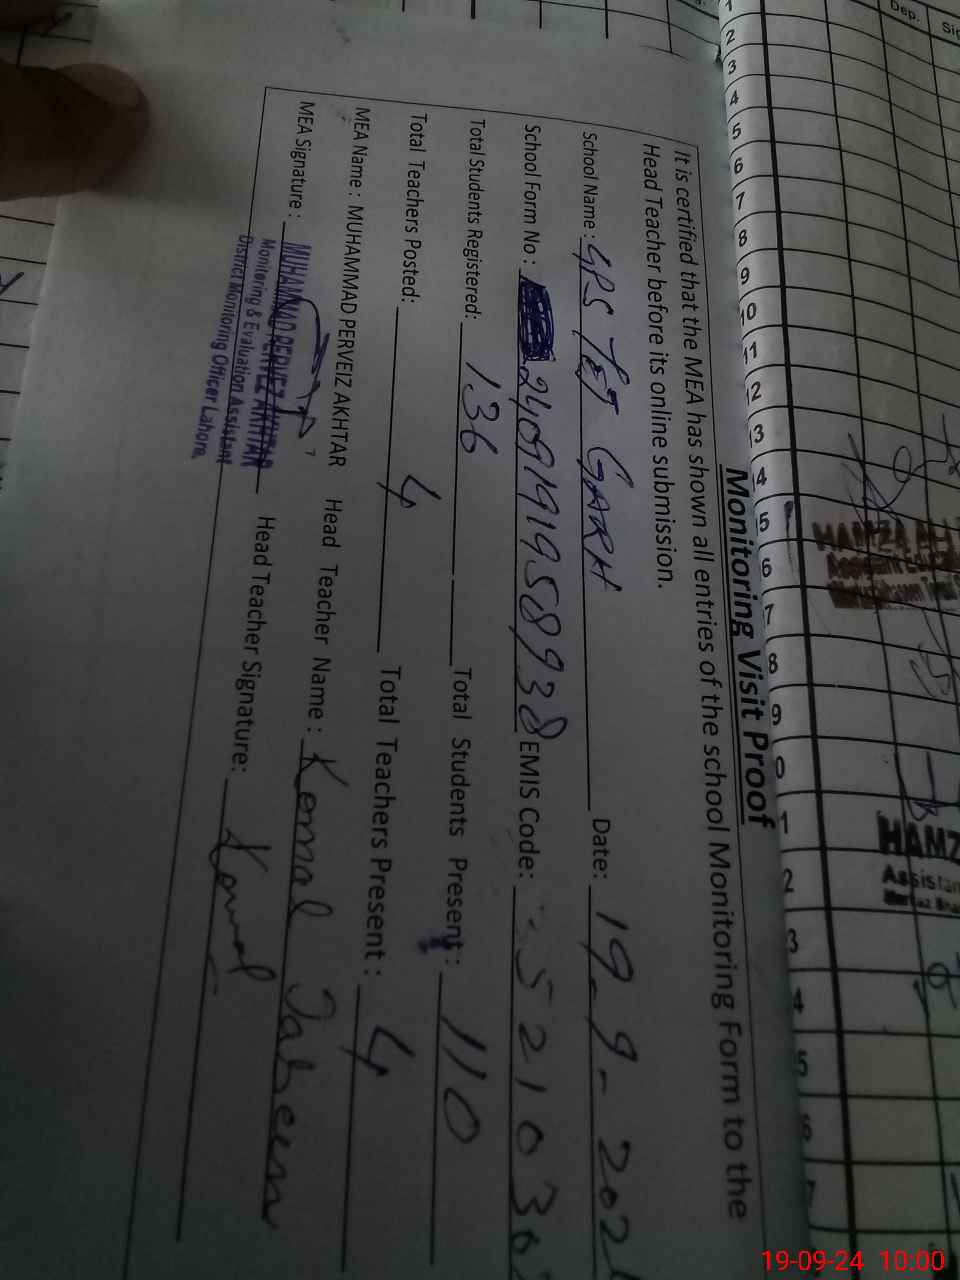 Monitoring Visit Proof
It is certified that the MEA has shown all entries of the school Monitoring Form to the
Head Teacher before its online submission.
School Name: GPS TEJ GARH Date: 19-9-202
School Form No: 2409191958938 EMIS Code: 352103
Total Students Registered: 136 Total Students Present: 110
Total Teachers Posted: 4 Total Teachers Present: 4
MEA Name: MUHAMMAD PERVEIZ AKHTAR Head Teacher Name: Komal Jabeen
MEA Signature: Head Teacher Signature: Komal
MUHAMMAD PERVEZ AKHTAR
Monitoring & Evaluation Assistant
District Monitoring Officer Lahore.
Dep.
1 2 3 4 5 6 7 8 9 10 11 12 13 14 15 16 17 18 19
HAMZA ALI
HAMZ
Assistan
19-09-24 10:00